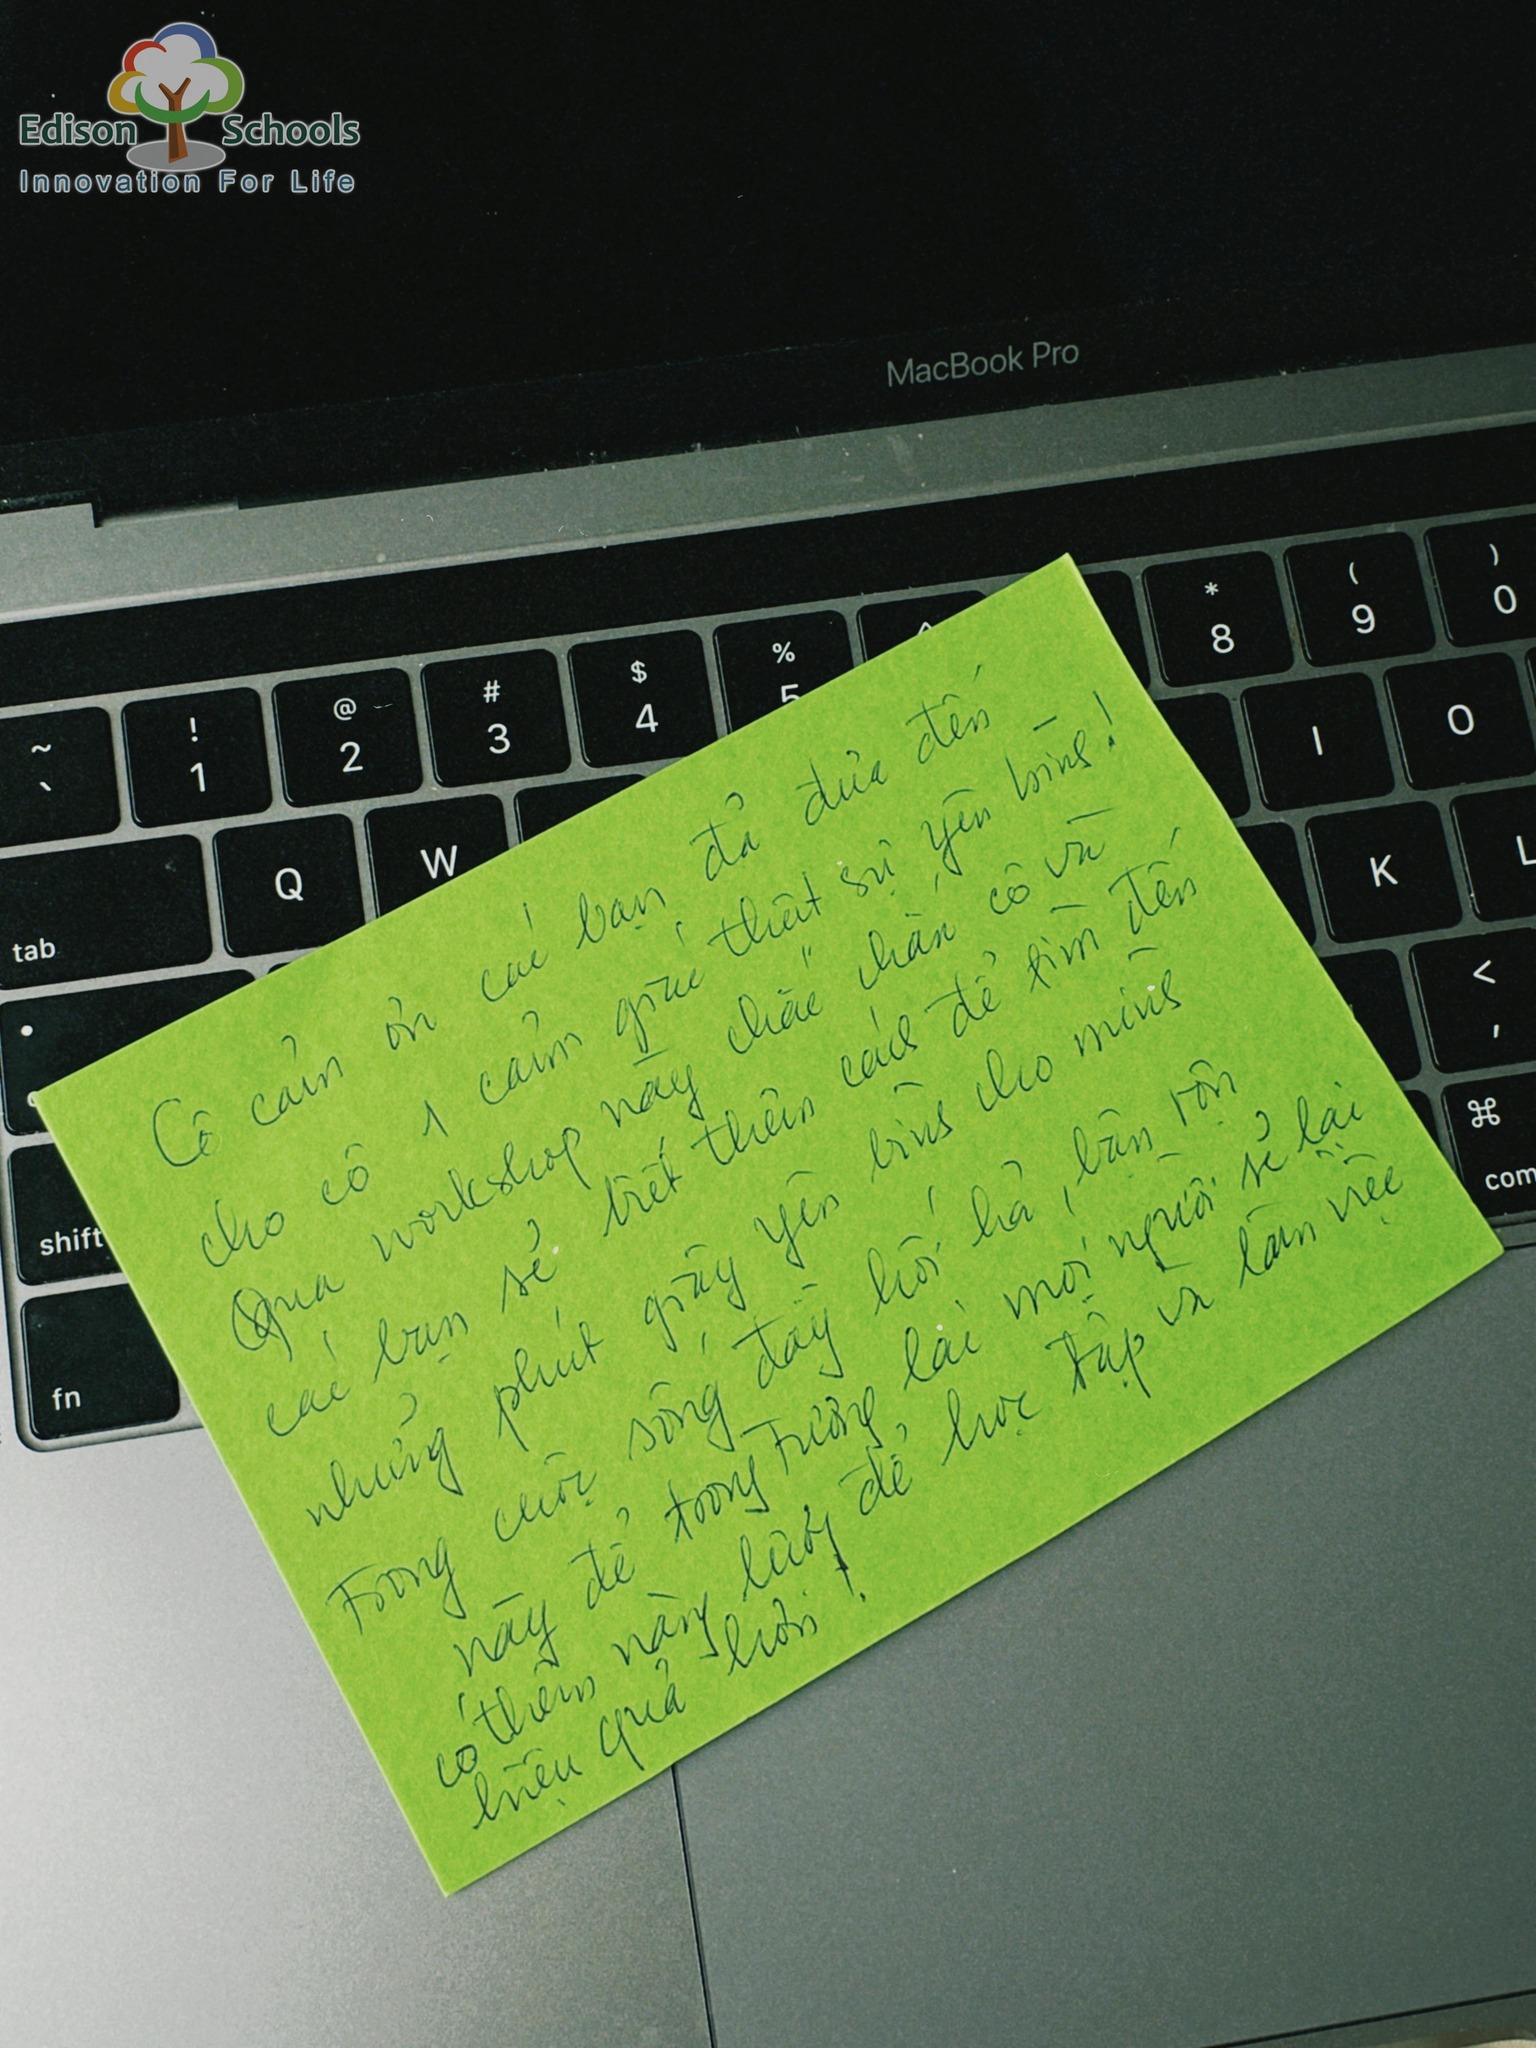 Edison Schools
Innovation For Life
MacBook Pro
~ ! @ # $ % ^ * ( )
` 1 2 3 4 5 8 9 0
tab Q W I O
K L
shift < ,
fn ⌘ com
Cô cảm ơn các bạn đã đưa đến
cho cô 1 cảm giác thật sự yên bình!
Qua workshop này chắc chắn cô và
các bạn sẽ biết thêm cách để tìm đến
những phút giây yên bình cho mình
trong cuộc sống đầy hối hả, bận rộn
này để trong tương lai mọi người sẽ lại
có thêm năng lượng để học tập và làm việc
hiệu quả hơn!